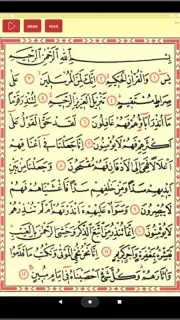 بِسْمِ اللّٰهِ الرَّحْمٰنِ الرَّحِيْمِ
يٰسٓ ۝١ وَالْقُرْاٰنِ الْحَكِيْمِ ۝٢ اِنَّكَ لَمِنَ الْمُرْسَلِيْنَ ۝٣ عَلٰى
صِرَاطٍ مُّسْتَقِيْمٍ ۝٤ تَنْزِيْلَ الْعَزِيْزِ الرَّحِيْمِ ۝٥ لِتُنْذِرَ قَوْمًا
مَّاۤ اُنْذِرَ اٰبَآؤُهُمْ فَهُمْ غٰفِلُوْنَ ۝٦ لَقَدْ حَقَّ الْقَوْلُ عَلٰۤى
اَكْثَرِهِمْ فَهُمْ لَا يُؤْمِنُوْنَ ۝٧ اِنَّا جَعَلْنَا فِيْۤ اَعْنَاقِهِمْ
اَغْلٰلًا فَهِيَ اِلَى الْاَذْقَانِ فَهُمْ مُّقْمَحُوْنَ ۝٨ وَجَعَلْنَا مِنْۢ بَيْنِ
اَيْدِيْهِمْ سَدًّا وَّمِنْ خَلْفِهِمْ سَدًّا فَاَغْشَيْنٰهُمْ فَهُمْ
لَا يُبْصِرُوْنَ ۝٩ وَسَوَآءٌ عَلَيْهِمْ ءَاَنْذَرْتَهُمْ اَمْ لَمْ تُنْذِرْهُمْ
لَا يُؤْمِنُوْنَ ۝١٠ اِنَّمَا تُنْذِرُ مَنِ اتَّبَعَ الذِّكْرَ وَخَشِيَ الرَّحْمٰنَ بِالْغَيْبِ
فَبَشِّرْهُ بِمَغْفِرَةٍ وَّاَجْرٍ كَرِيْمٍ ۝١١ اِنَّا نَحْنُ نُحْيِ الْمَوْتٰى وَنَكْتُبُ مَا قَدَّمُوْا
وَاٰثَارَهُمْ وَكُلَّ شَيْءٍ اَحْصَيْنٰهُ فِيْۤ اِمَامٍ مُّبِيْنٍ ۝١٢